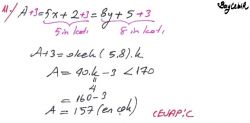 11) A+3=5x+2+3=8y+5+3
5 in katı 8 in katı
A+3=okek(5,8).k
A=40.k-3<170
4
=160-3
A=157(en çok)
CEVAP:C